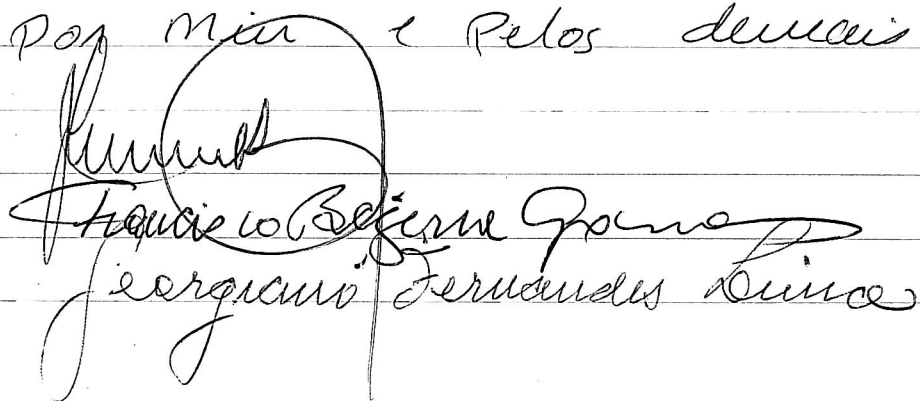 por mim e pelos demais
Francisco Bezerra
Georgiano Fernandes Lima